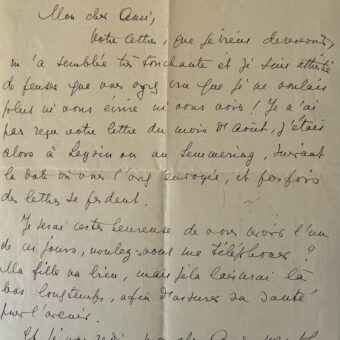 Mon cher Ami,
Votre lettre, que je viens de recevoir,
m'a semblée très touchante et je suis attristée
de penser que vous ayez cru que je ne voulais
plus ni vous écrire ni vous voir! Je n'ai
pas reçu votre lettre du mois d'août, j'étais
alors à Leysin ou au Semmering, suivant
la date où vous l'avez envoyée, et parfois
des lettres se perdent.
Je serai certes heureuse de vous avoir l'un
de ces jours, voulez-vous me téléphoner?
Ma fille va bien, mais je la laisserai là
bas longtemps, afin d'assurer sa santé
pour l'avenir.
Et je vous